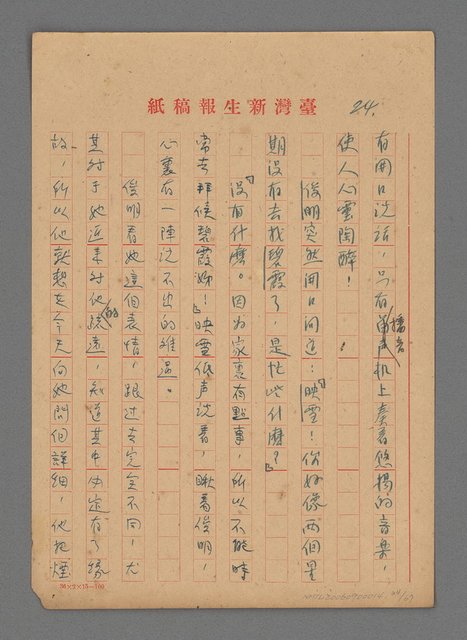 臺灣新生報稿紙
24.
有開口說話，只有播音机上奏着悠揚的音樂，
使人心靈陶醉！
俊明突然開口问道：「映雪！你好像两個星
期没有去找碧霞了，是忙些什麼？」
「没有什麼。因为家裏有點事，所以不能時
常去拜候碧霞姊！」映雪低声说着，瞅着俊明，
心裏有一陣说不出的难過。
俊明看她這個表情，跟过去完全不同，尤
其对于她近来对他的疏遠，知道其中必定有了緣
故，所以他就想在今天向她問個詳細，他把煙
36×2×15—100